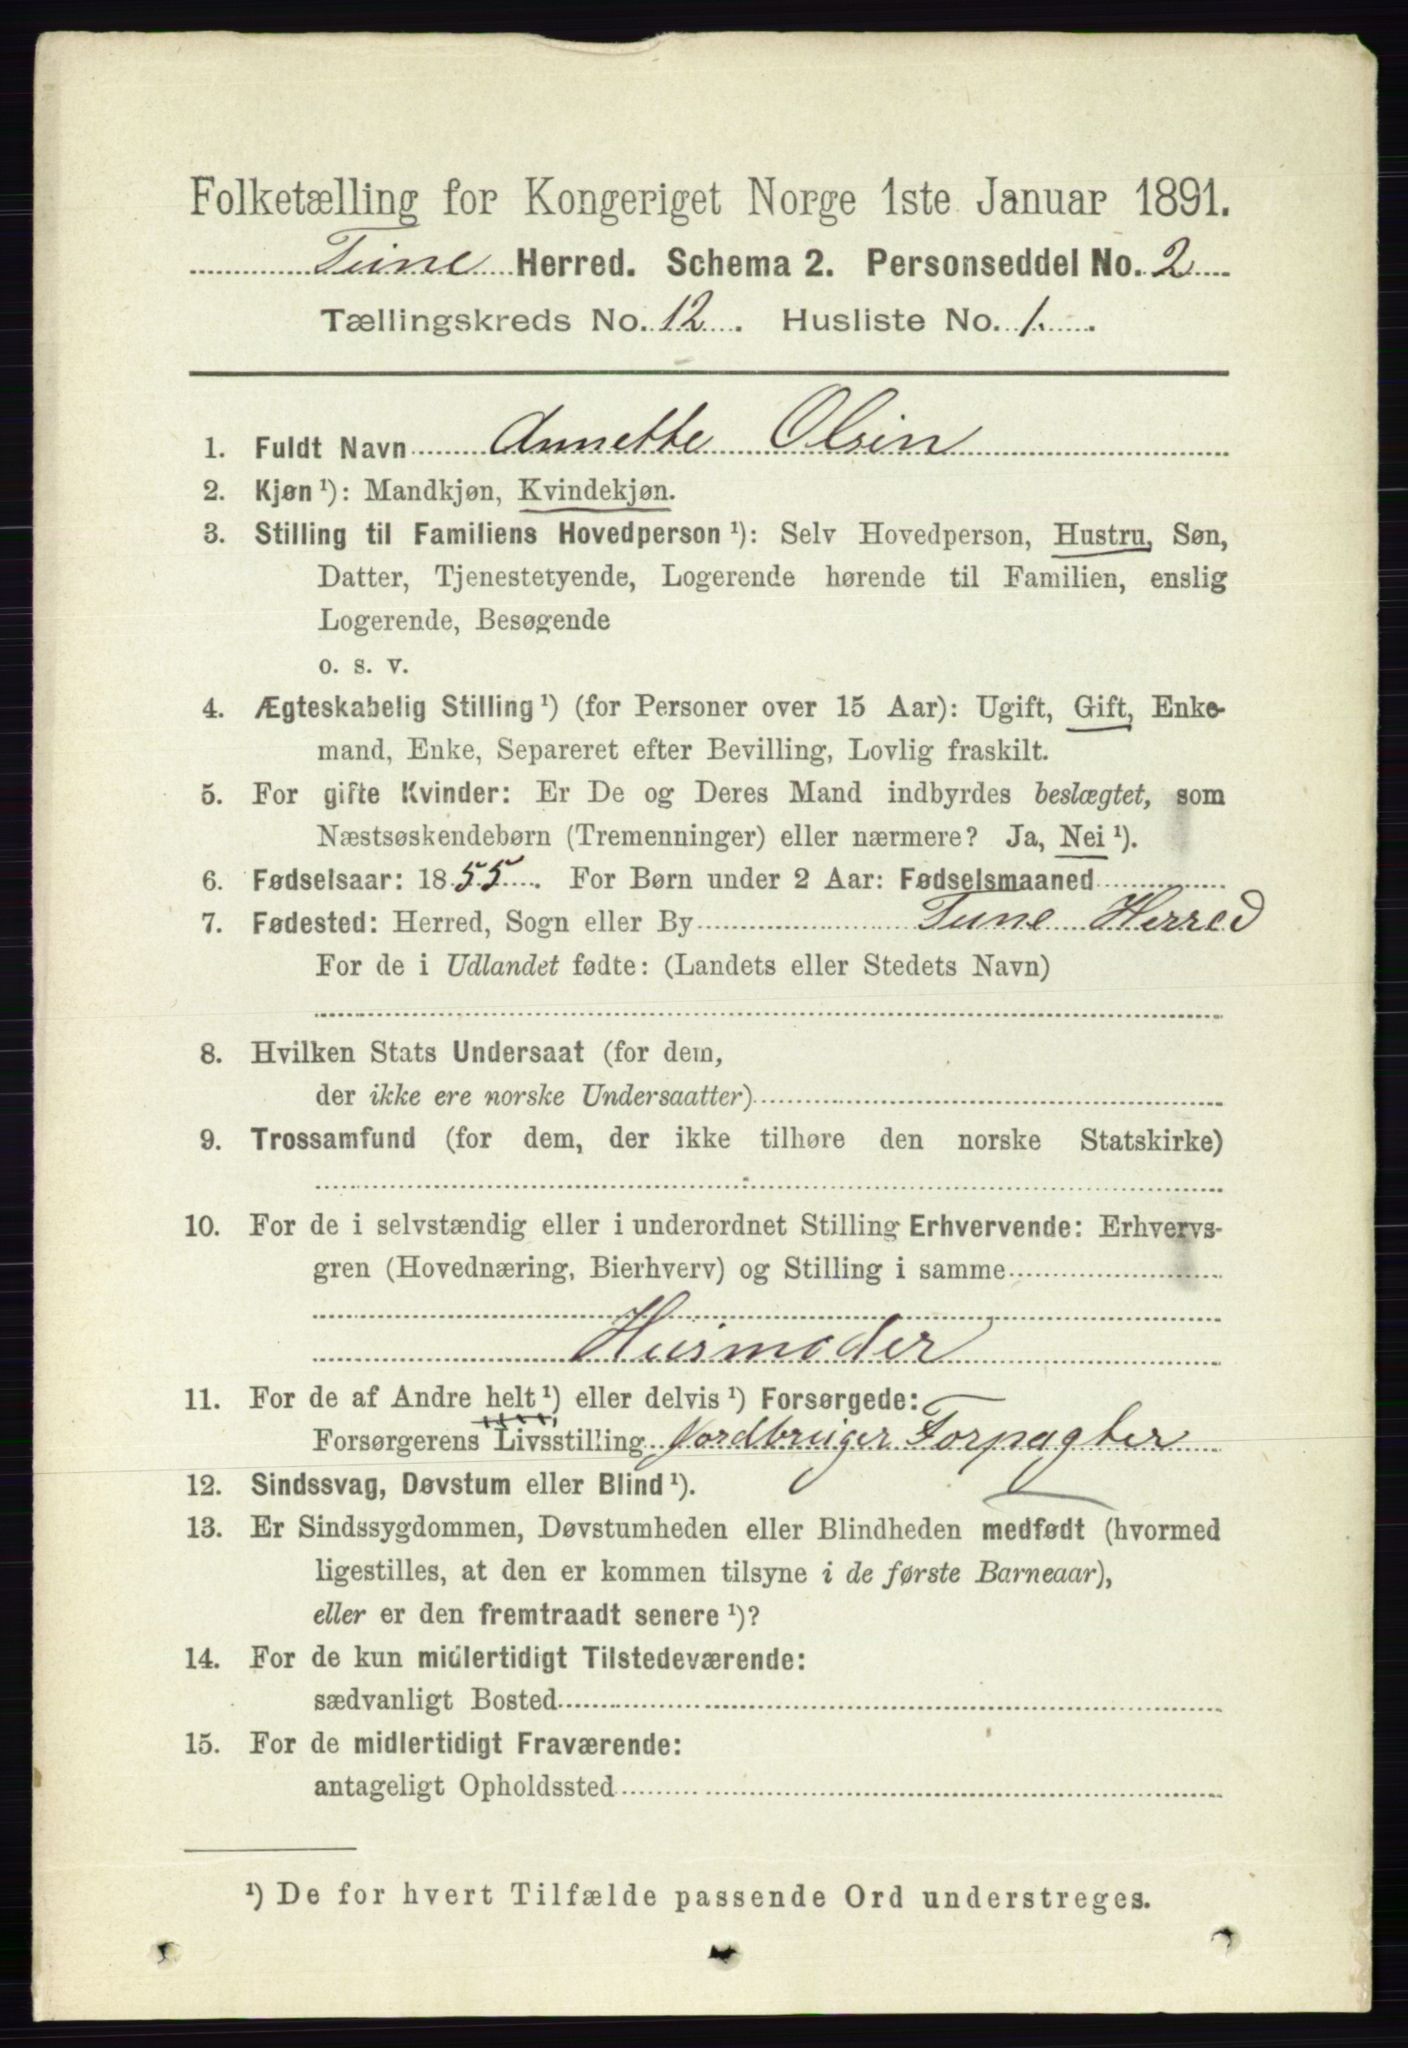 Folketælling for Kongeriget Norge 1ste Januar 1891.
Tune Herred. Schema 2. Personseddel No. 2
Tællingskreds No. 12. Husliste No. 1.
1. Fuldt Navn Annette Olsen
2. Kjøn ¹): Mandkjøn, Kvindekjøn.
3. Stilling til Familiens Hovedperson ¹): Selv Hovedperson, Hustru, Søn,
Datter, Tjenestetyende, Logerende hørende til Familien, enslig
Logerende, Besøgende
o. s. v.
4. Ægteskabelig Stilling ¹) (for Personer over 15 Aar): Ugift, Gift, Enke-
mand, Enke, Separeret efter Bevilling, Lovlig fraskilt.
5. For gifte Kvinder: Er De og Deres Mand indbyrdes beslægtet, som
Næstsøskendebørn (Tremenninger) eller nærmere? Ja, Nei ¹).
6. Fødselsaar: 1855. For Børn under 2 Aar: Fødselsmaaned
7. Fødested: Herred, Sogn eller By Tune Herred
For de i Udlandet fødte: (Landets eller Stedets Navn)
8. Hvilken Stats Undersaat (for dem,
der ikke ere norske Undersaatter)
9. Trossamfund (for dem, der ikke tilhøre den norske Statskirke)
10. For de i selvstændig eller i underordnet Stilling Erhvervende: Erhvervs-
gren (Hovednæring, Bierhverv) og Stilling i samme
Husmoder
11. For de af Andre helt ¹) eller delvis ¹) Forsørgede:
Forsørgerens Livsstilling Jordbruger Forpagter
12. Sindssvag, Døvstum eller Blind ¹).
13. Er Sindssygdommen, Døvstumheden eller Blindheden medfødt (hvormed
ligestilles, at den er kommen tilsyne i de første Barneaar),
eller er den fremtraadt senere ¹)?
14. For de kun midlertidigt Tilstedeværende:
sædvanligt Bosted
15. For de midlertidigt Fraværende:
antageligt Opholdssted
¹) De for hvert Tilfælde passende Ord understreges.